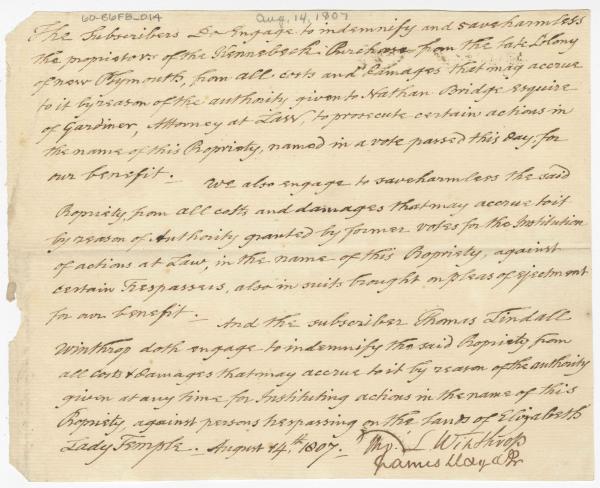 60-B6FB-014
Aug, 14, 1807
The Subscribers Do Engage to indemnify and saveharmless
the proprietors of the Kennebeck Purchase from the late Colony
of new Plymouth, from all costs and damages that may accrue
to it by reason of the authority given to Nathan Bridge esquire
of Gardiner, Attorney at Law, to prosecute certain actions in
the name of this Propriety, named in a vote passed this day, for
our benefit.
We also engage to saveharmless the said
Propriety, from all costs and damages that may accrue to it
by reason of Authority granted by former votes for the Institution
of actions at Law, in the name of this Propriety, against
certain Trespassers, also in suits brought on pleas of ejectment
for our benefit.
And the subscriber Thomas Lindall
Winthrop doth engage to indemnify the said Propriety, from
all costs & damages that may accrue to it by reason of the authority
given at any time for Instituting actions in the name of this
Propriety, against persons trespassing on the lands of Elizabeth
Lady Temple. August 14th. 1807. Tho. L Winthrop
James Lloyd Jr